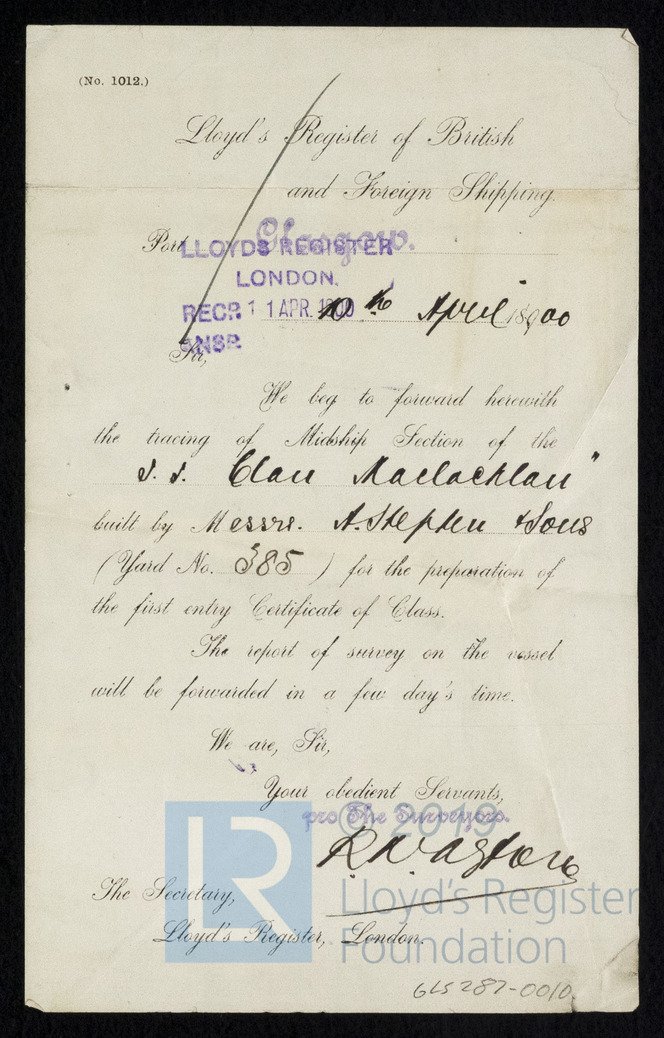 (No. 1012.)
Lloyd's Register of British
and Foreign Shipping.
Port Glasgow.
LLOYDS REGISTER
LONDON.
RECD 11 APR. 1900
ANSD
10th April 1900
Sir,
We beg to forward herewith
the tracing of Midship Section of the
S. S. Clan Maclachlan"
built by Messrs. A. Stephen & Sons
(Yard No. 385) for the preparation of
the first entry Certificate of Class.
The report of survey on the vessel
will be forwarded in a few day's time.
We are, Sir,
Your obedient Servants,
pro The Surveyors.
© 2019
LR
The Secretary,
Lloyd's Register, London.
Lloyd's Register
Foundation
GLS287-0010